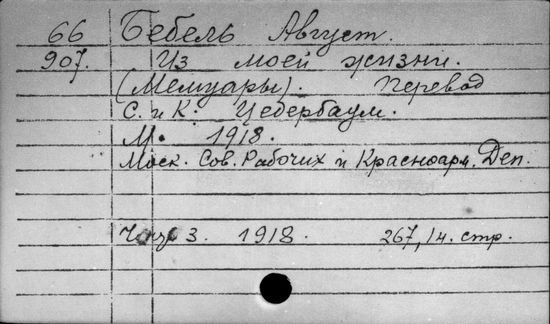 66 Бебель Август.
907. Из моей жизни.
(Мемуары). Перевод
С. и К. Цедербаум.
М. 1918.
Моск. Сов. Рабочих и Красноарм. Деп.
3. 1918. 267, 14. стр.